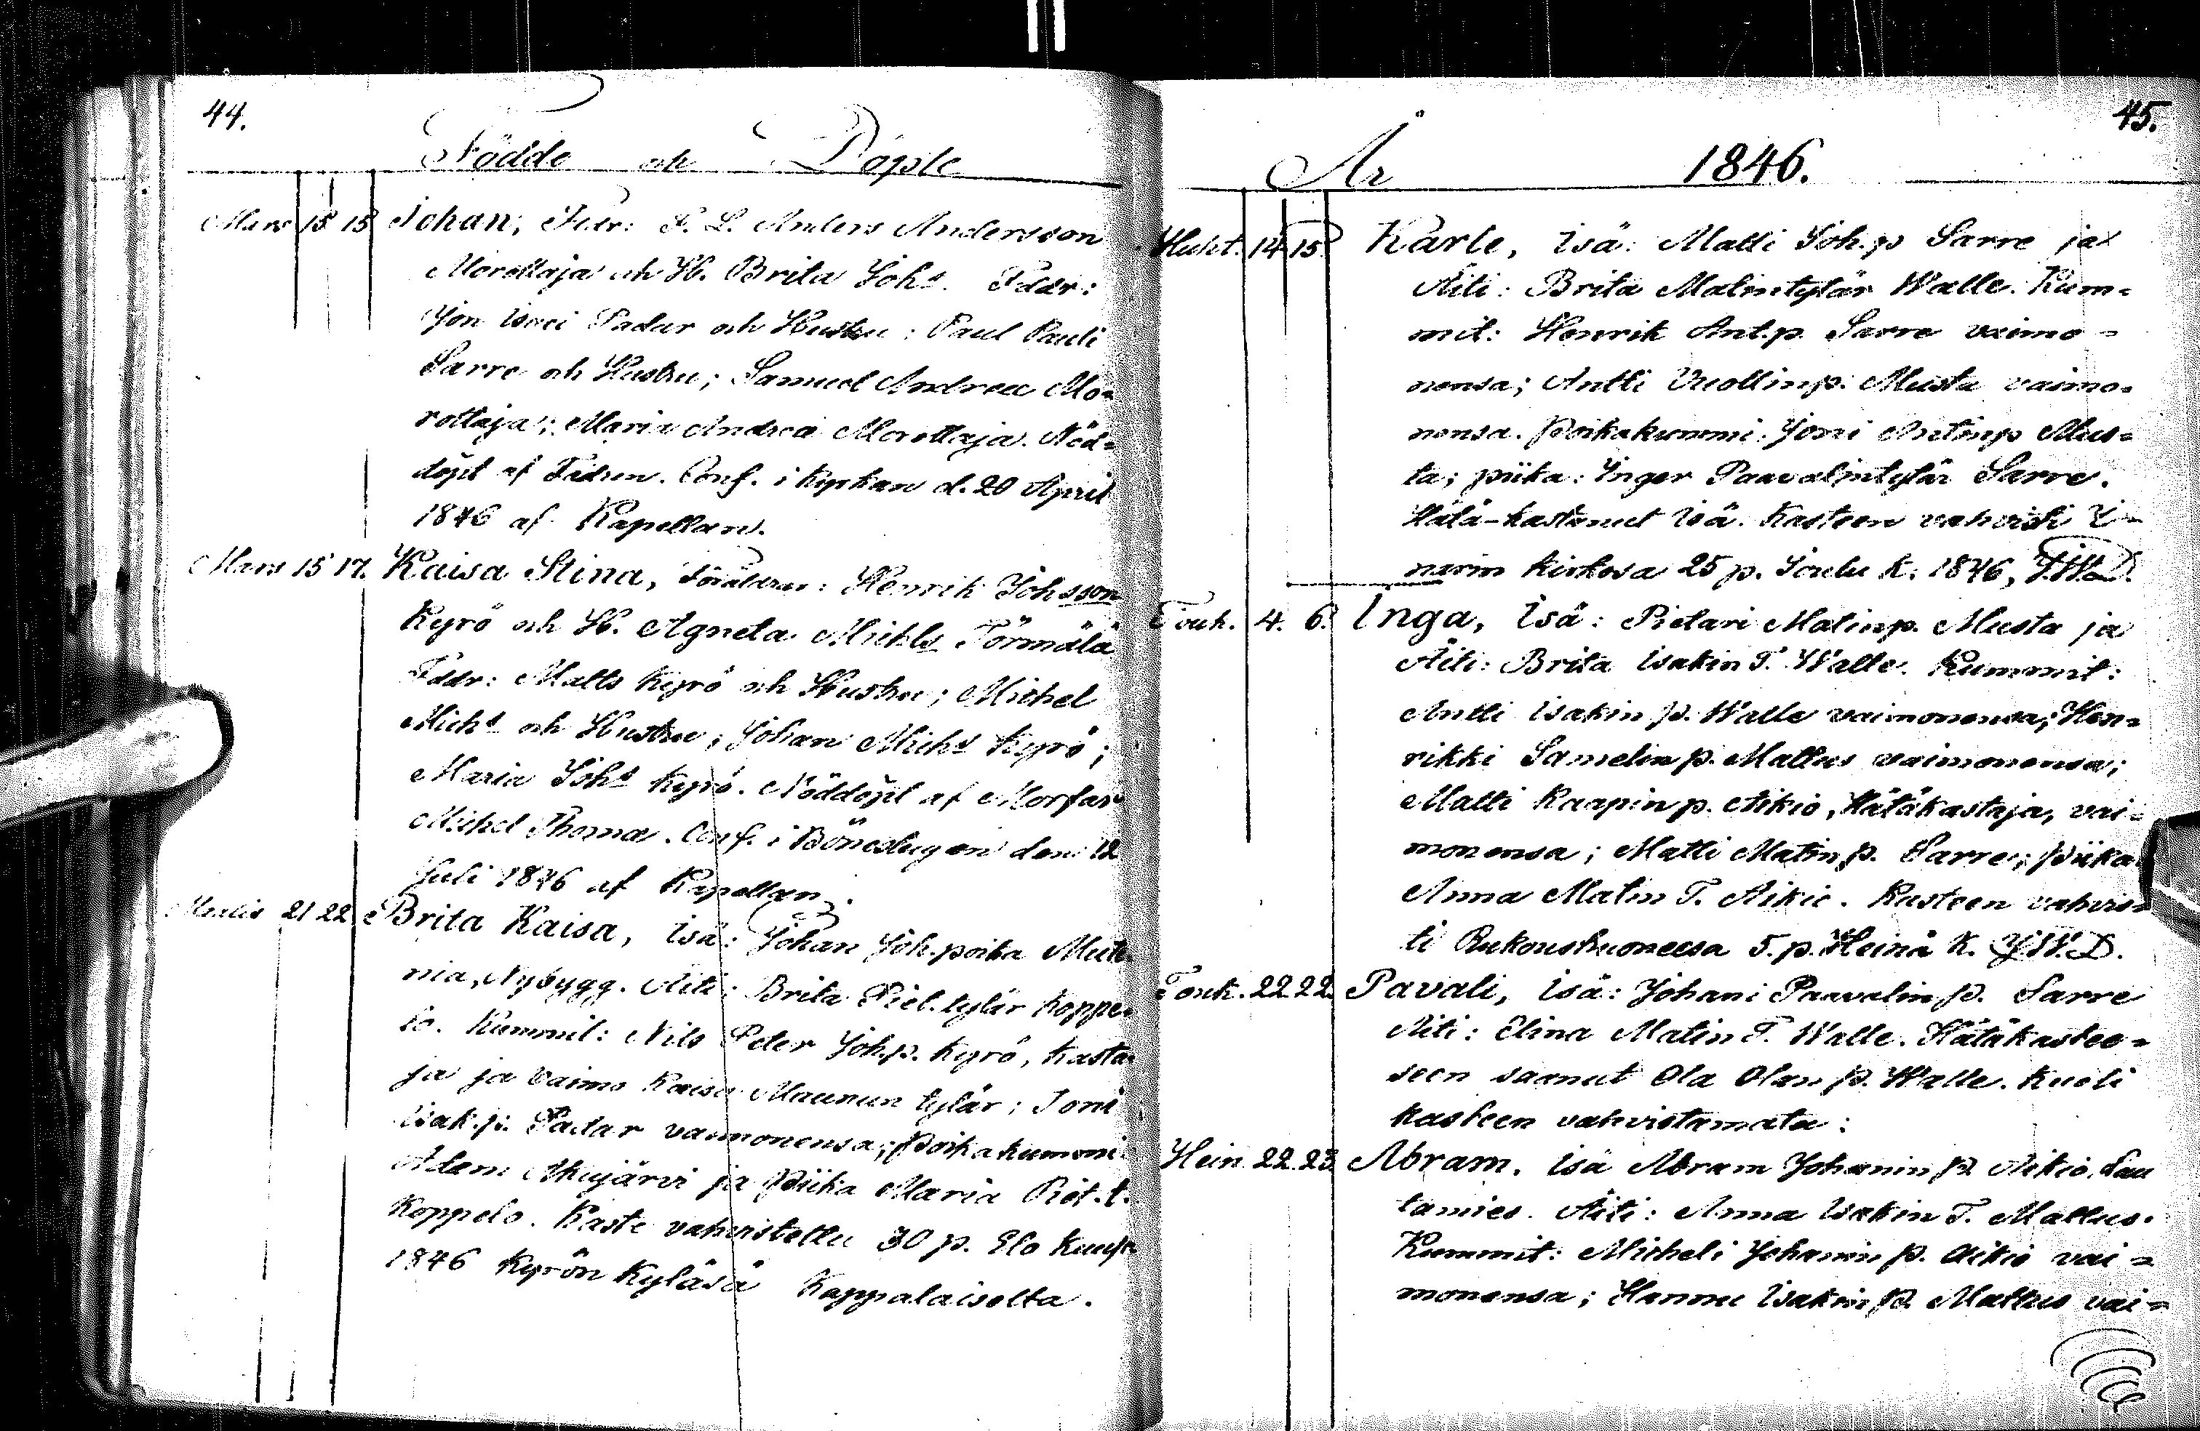 44.
Födde och Döpte
Mars 15 15 Johan, Fdr: F. L. Anders Andersson
Morottaja och H. Brita Johs. Fddr:
Jon Isaci Padar och Hustru; Paul Pauli
Sarre och Hustru; Samuel Andreæ Mo-
rottaja; Maria Andreæ Morottaja. Nöd-
döpt af Fadren. Conf. i Kyrkan d. 20 April
1846 af Kapellan.
Mars 15 17. Kaisa Stina, Föräldrar: Henrik Johsson
Kyrö och H. Agneta Michls Törmälä
Fddr: Matts Kyrö och Hustru; Michel
Michs och Hustru; Johan Michs Kyrö;
Maria Johs Kyrö. Nöddöpt af Morfar
Michel Thomæ. Conf. i Bönestugan den 12
Juli 1846 af Kapellan.
Maalis 21 22 Brita Kaisa, isä: Johan Joh.poika Mute-
nia, Nybygg. Äiti: Brita Piet.tytär Koppe-
lo. Kummit: Nils Peter Joh.p. Kyrö, Kasta-
ja ja vaimo Kaisa Maunun tytär; Joni
Isak.p. Padar vaimonensa; poika kummi
Adam Akujärvi ja piika Maria Piet.t.
Koppelo. Kaste vahvistettu 30 p. Elo Kuusa
1846 Kyrön Kyläsä Kappalaiselta.
45.
År 1846.
Huht. 14 15 Karle, isä: Matti Joh.p Sarre ja
Äiti: Brita Matintytär Walle. Kum-
mit: Henrik Ant.p. Sarre vaimo-
nensa; Antti Vuollinp. Musta vaimo-
nensa. Poikakummi: Joni Antinp Mus-
ta; piika: Inger Paavalintytär Sarre.
Hätä-kastanut isä. Kasteen vahvisti I-
narin kirkosa 25 p. Joulu k. 1846, J.W.D.
Touk. 4. 6. Inga, isä: Pietari Matinp. Musta ja
Äiti: Brita Isakin T. Walle. Kummit:
Antti Isakin p. Walle vaimonensa; Hen-
rikki Samelin p. Mattus vaimonensa;
Matti Kaapin p. Aikio, Hätäkastaja, vai-
monensa; Matti Matin p. Sarre; piika
Anna Matin T. Aikio. Kasteen vahvis-
ti Rukoushuoneesa 5. p. Heinä K. J.W.D.
Touk. 22 22 Pavali, isä: Johani Paavalin p. Sarre
Äiti: Elina Matin T. Walle. Hätäkastee-
seen saanut Ola Olan p. Walle. Kuoli
kasteen vahvistamata:
Hein. 22. 23 Abram. isä Abram Johanin p. Aikio, Lau
tamies. Äiti: Anna Isakin T. Mattus.
Kummit: Micheli Johanin p. Aikio vai-
monensa; Hannu Isakin p. Mattus vai-